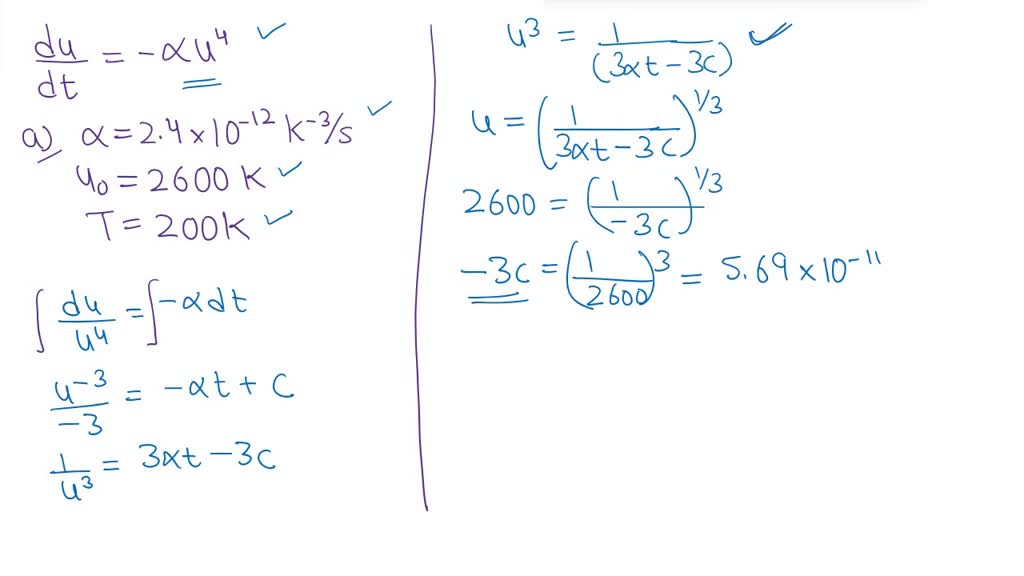 du/dt = -αu⁴ ✓
a) α = 2.4 × 10⁻¹² K⁻³/s ✓
u₀ = 2600 K ✓
T = 200K ✓
∫ du/u⁴ = ∫ -αdt
u⁻³/-3 = -αt + C
1/u³ = 3αt - 3C
u³ = 1/(3αt - 3C) ✓
u = (1/3αt - 3C)^1/3
2600 = (1/-3C)^1/3
-3C = (1/2600)³ = 5.69 × 10⁻¹¹